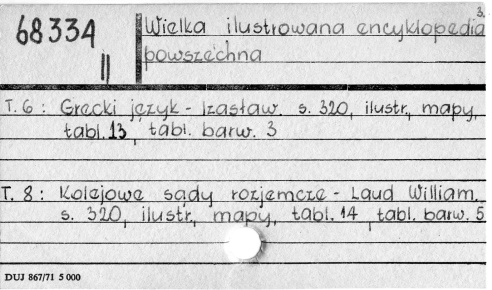 3.
68334
II
Wielka ilustrowana encyklopedia
powszechna
T. 6 : Grecki język - Izasław. s. 320, ilustr., mapy,
tabl. 13, tabl. barw. 3
T. 8 : Kolejowe sądy rozjemcze - Laud William.
s. 320, ilustr., mapy, tabl. 14, tabl. barw. 5
DUJ 867/71 5 000